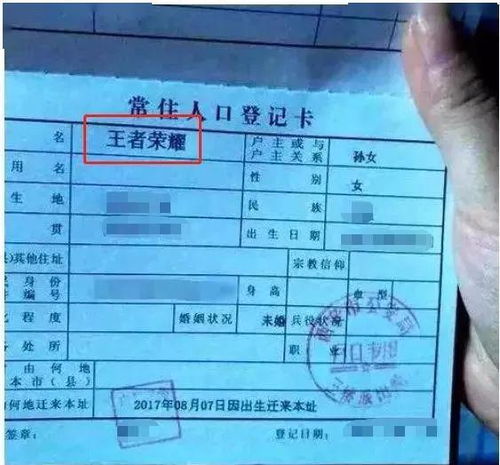 常住人口登记卡
名 王者荣耀 户主或与户主关系 孙女
用名 性别 女
生地 民族
贯 出生日期
)其他住址 宗教信仰
身份编号 身高 血型
程度 婚姻状况 未婚 兵役状况
处所 职业
由何地
本市(县)
何地迁来本址 2017年08月07日因出生迁来本址
签章: 登记日期: